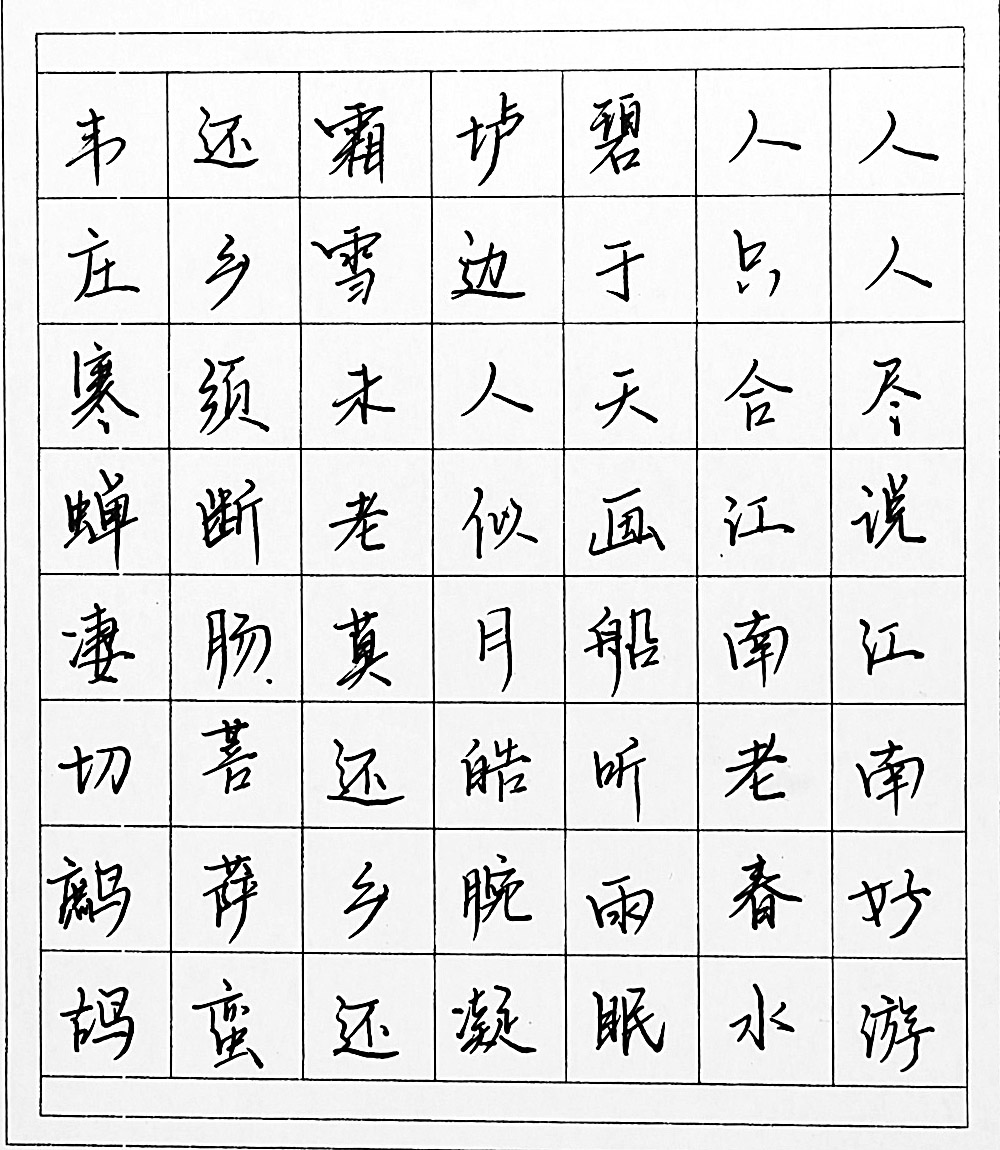 人人尽说江南妙游
人只合江南老春水
碧于天画船听雨眠
垆边人似月皓腕凝
霜雪未老莫还乡还
还乡须断肠菩萨蛮
韦庄寒蝉凄切鹧鸪